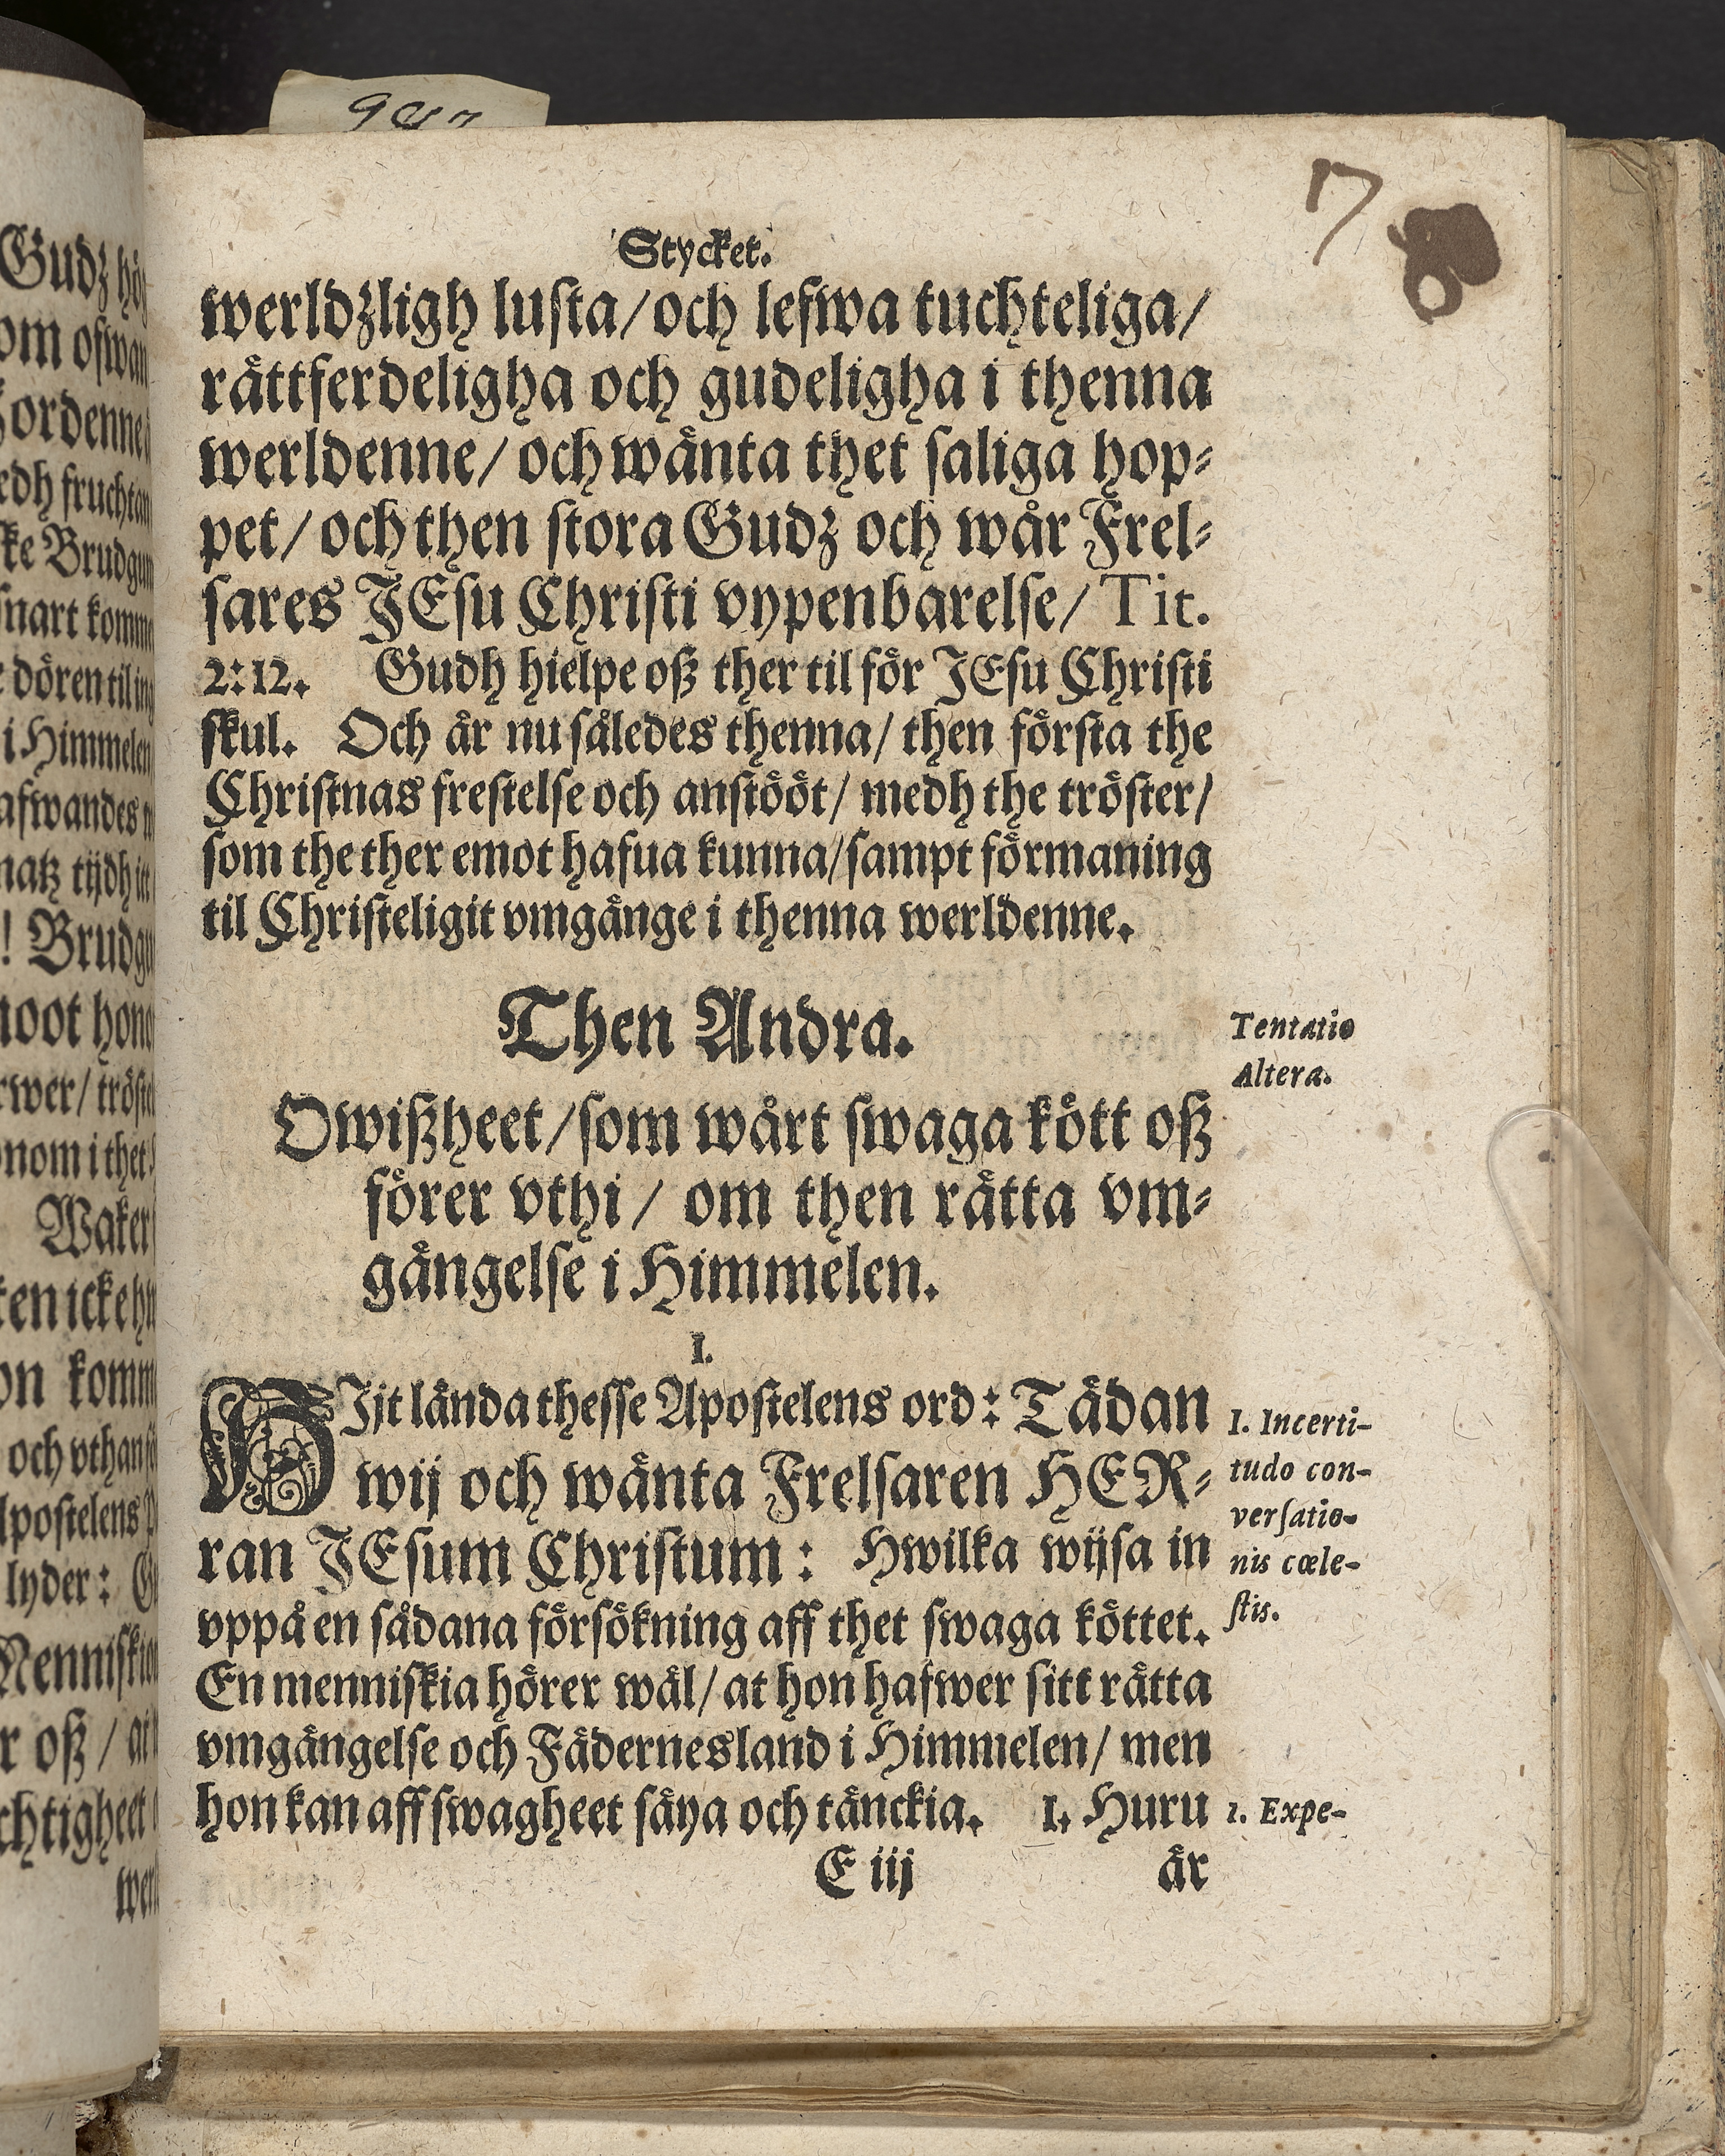 Stycket.
werldzligh lusta/och lefwa tuchteliga/
råttferdeligha och gudeligha i thenna
werldenne/ och wånta thet saliga hop-
pet/ och then stora Gudz och wår Frel-
sares JEsu Christi vypenbarelse/ Tit.
2:12. Gudh hielpe oß ther til för JEsu Christi
skul. Och är nu således thenna/ then första the
Christnas frestelse och anstööt/ medh the tröster/
som the ther emot hafua kunna/sampt förmaning
til Christeligit vmgänge i thenna werldenne.
Then Andra.
Tentatio
Altera.
Owißheet/som wårt swaga kött oß
förer vthi/ om then rätta vm-
gängelse i Himmelen.
I.
HJit lända thesse Apostelens ord: Tädan
wij och wänta Frelsaren HER-
ran JEsum Christum: Hwilka wijsa in
vppå en sådana försökning aff thet swaga köttet.
En menniskia hörer wäl/ at hon hafwer sitt rätta
vmgängelse och Fädernesland i Himmelen/ men
hon kan aff swagheet säya och tänckia. 1. Huru
I. Incerti-
tudo con-
versatio-
nis cœle-
stis.
1. Expe-
E iij är
Gudz
ofwan
Brudgum
snart
dören til
i Himmelen
tijdh
! Brudgu
/ tröst
i thet
Waker
och vthan
lyder:
oß /
7